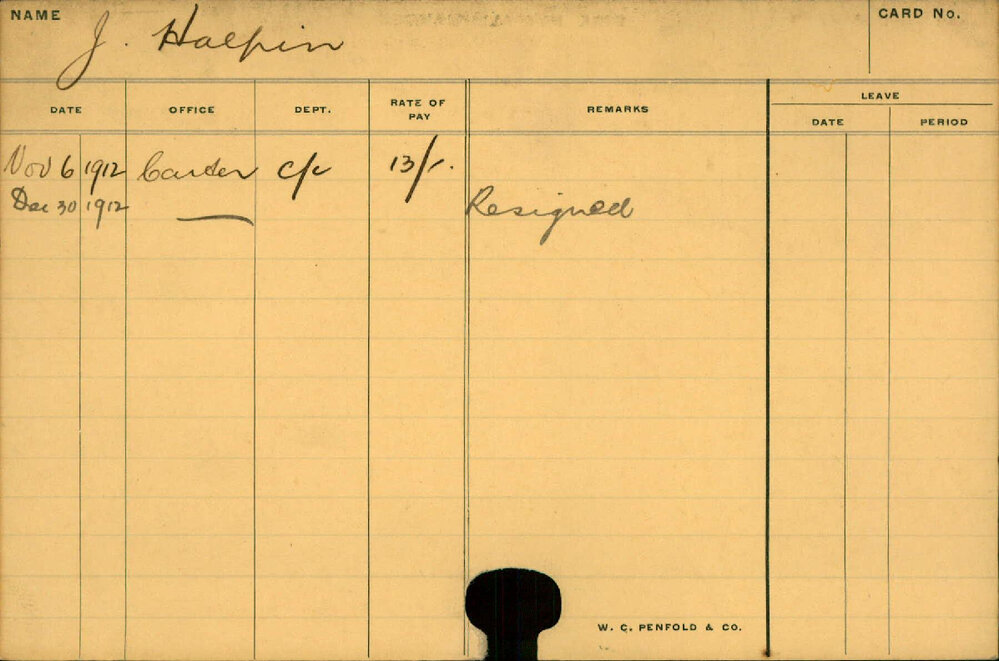 NAME J. Halpin CARD No.
DATE OFFICE DEPT. RATE OF PAY REMARKS LEAVE
DATE PERIOD
Nov 6 1912 Carter c/c 13/-.
Dec 30 1912 Resigned
W. C. PENFOLD & CO.